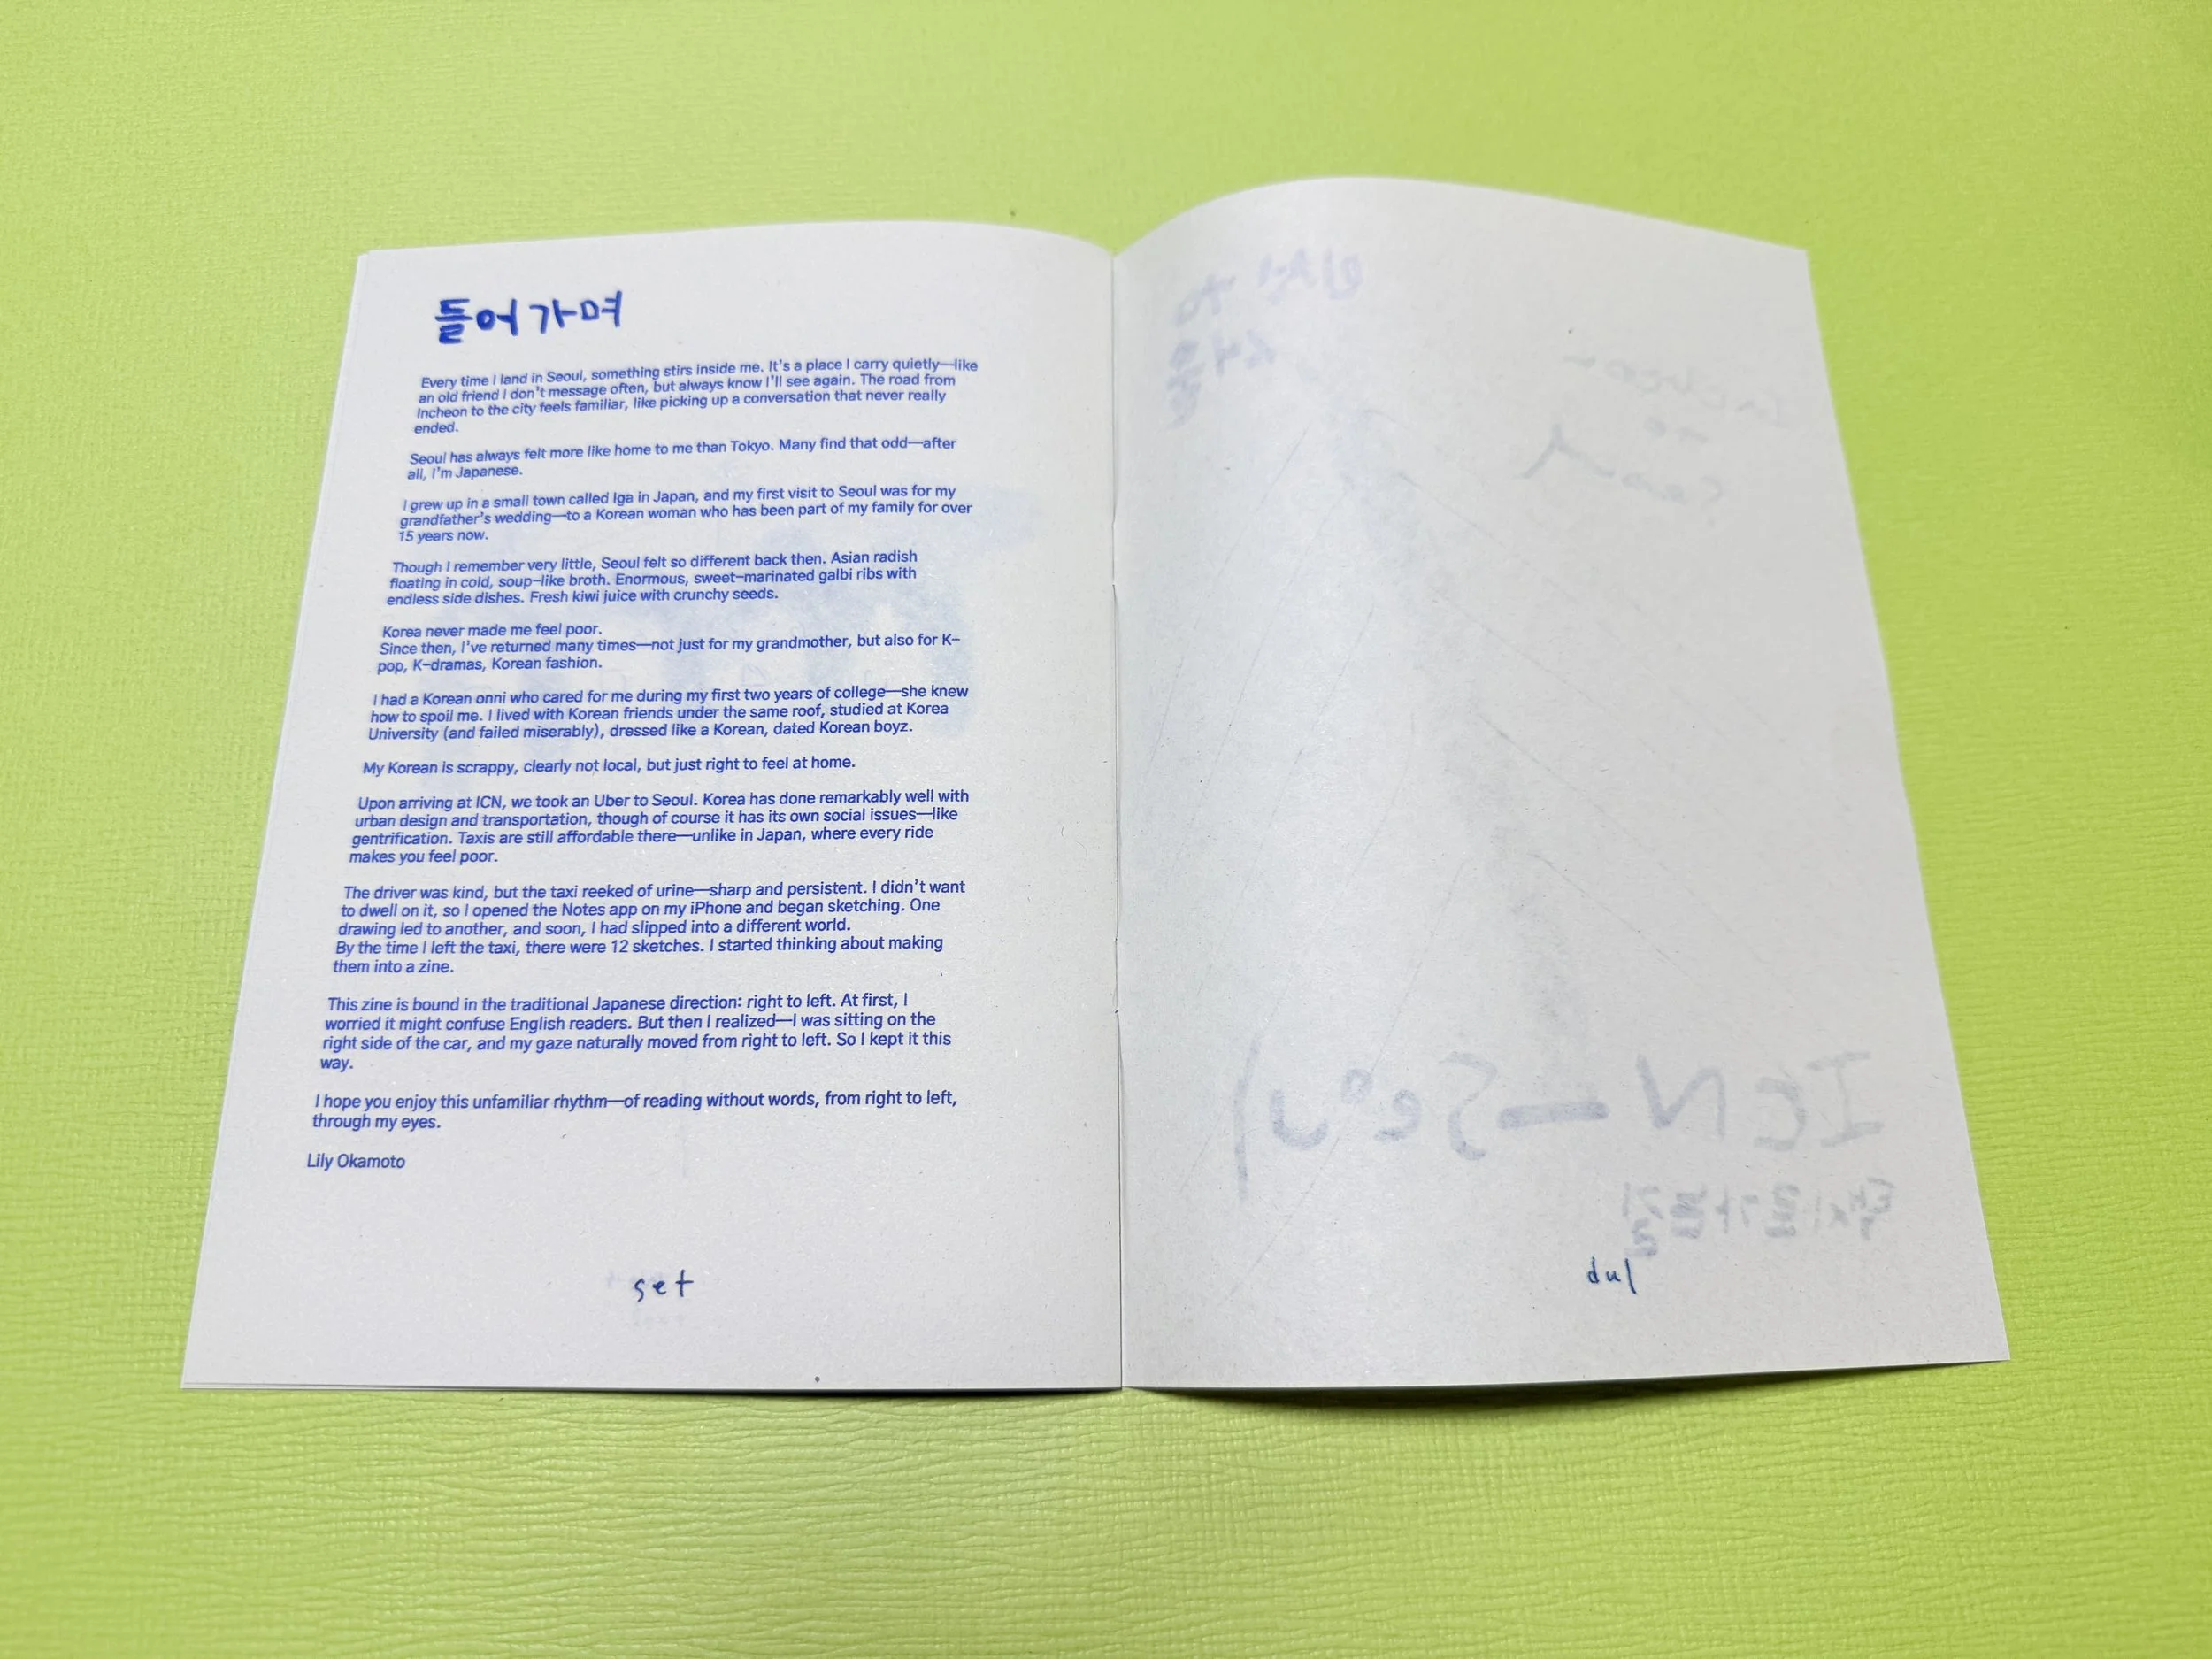 들어가며
Every time I land in Seoul, something stirs inside me. It's a place I carry quietly—like
an old friend I don't message often, but always know I'll see again. The road from
Incheon to the city feels familiar, like picking up a conversation that never really
ended.
Seoul has always felt more like home to me than Tokyo. Many find that odd—after
all, I'm Japanese.
I grew up in a small town called Iga in Japan, and my first visit to Seoul was for my
grandfather's wedding—to a Korean woman who has been part of my family for over
15 years now.
Though I remember very little, Seoul felt so different back then. Asian radish
floating in cold, soup-like broth. Enormous, sweet-marinated galbi ribs with
endless side dishes. Fresh kiwi juice with crunchy seeds.
Korea never made me feel poor.
Since then, I've returned many times—not just for my grandmother, but also for K-
pop, K-dramas, Korean fashion.
I had a Korean onni who cared for me during my first two years of college—she knew
how to spoil me. I lived with Korean friends under the same roof, studied at Korea
University (and failed miserably), dressed like a Korean, dated Korean boyz.
My Korean is scrappy, clearly not local, but just right to feel at home.
Upon arriving at ICN, we took an Uber to Seoul. Korea has done remarkably well with
urban design and transportation, though of course it has its own social issues—like
gentrification. Taxis are still affordable there—unlike in Japan, where every ride
makes you feel poor.
The driver was kind, but the taxi reeked of urine—sharp and persistent. I didn't want
to dwell on it, so I opened the Notes app on my iPhone and began sketching. One
drawing led to another, and soon, I had slipped into a different world.
By the time I left the taxi, there were 12 sketches. I started thinking about making
them into a zine.
This zine is bound in the traditional Japanese direction: right to left. At first, I
worried it might confuse English readers. But then I realized—I was sitting on the
right side of the car, and my gaze naturally moved from right to left. So I kept it this
way.
I hope you enjoy this unfamiliar rhythm—of reading without words, from right to left,
through my eyes.
Lily Okamoto
set
인천 to
서울
Incheon
to
Seoul
ICN—Seoul
dul